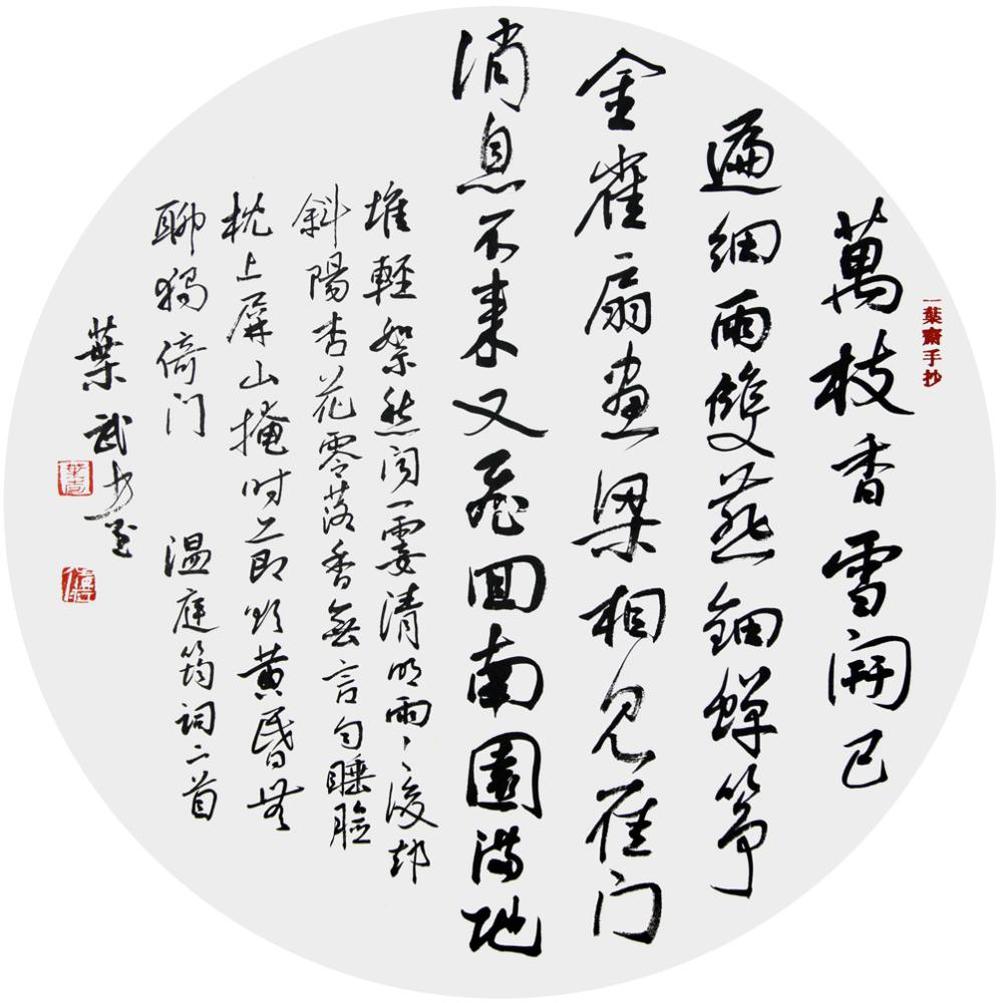 一葉齋手抄
萬枝香雪開已
遍細雨雙燕鈿蟬箏
金雀扇畫梁相見雁门
消息不來又飛回南園滿地
堆輕絮愁聞一霎清明雨〻後却
斜陽杏花零落香無言勻睡臉
枕上屏山掩时節欲黃昏無
聊獨倚门 温庭筠詞二首
葉武